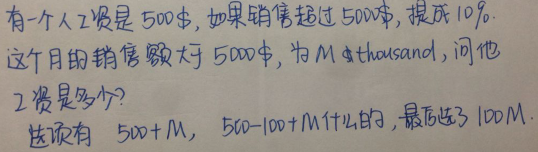 有一个人工资是500$,如果销售超过5000$,提成10%.
这个月的销售额大于5000$,为M $thousand,问他
工资是多少?
选项有 500+M, 500-100+M什么的,最后选了100M.